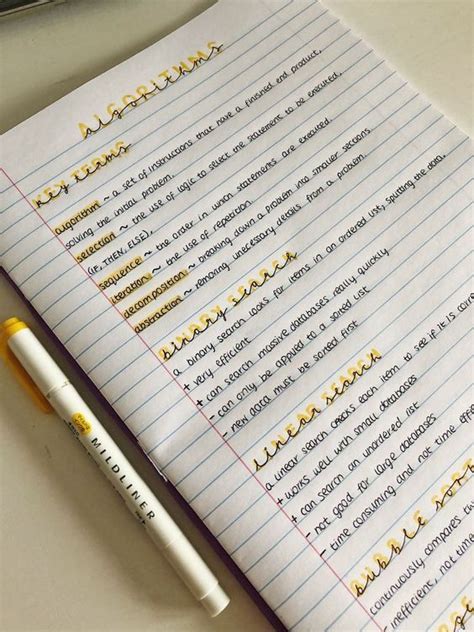 ALGORITHMS
algorithms
KEY TERMS
key terms
algorithm ~ a set of instructions that have a finished end product,
solving the initial problem.
selection ~ the use of logic to select the statement to be executed.
(IF, THEN, ELSE).
sequence ~ the order in which statements are executed.
iteration ~ the use of repetition.
decomposition ~ breaking down a problem into smaller sections.
abstraction ~ removing unnecessary details from a problem.
BINARY SEARCH
binary search
a binary search looks for items in an ordered list, splitting the data.
+ very efficient
+ can search massive databases really quickly.
- can only be applied to a sorted list
- new data must be sorted first
LINEAR SEARCH
linear search
a linear search checks each item to see if it is
+ works well with small databases
+ can search an unordered list
- not good for large databases
- time consuming and not time
BUBBLE
bubble
continuously compares
- inefficient, not
MILDLINER